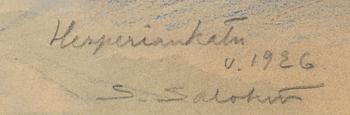 Hesperiankatu
v. 1926
S. Salokivi